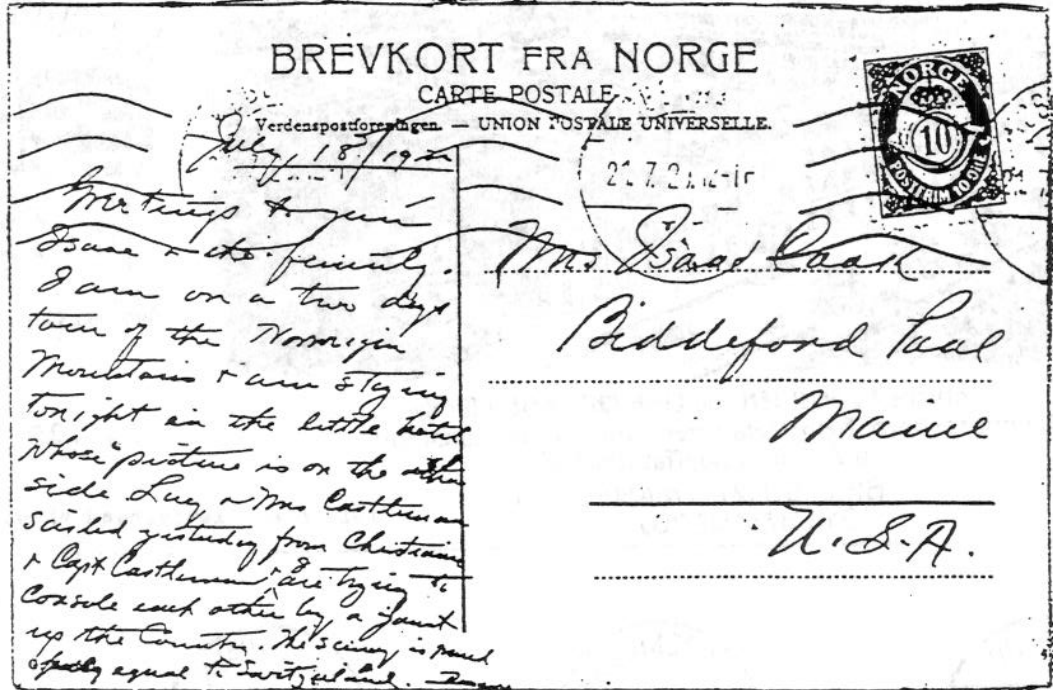 BREVKORT FRA NORGE
CARTE POSTALE
Verdenspostforeningen UNION POSTALE UNIVERSELLE.
NORGE
10
POSTFRIM 10 ORE
July 18/19
Greetings to you
Isaac & the family.
I am on a two days
tour of the
Mountains & am staying
tonight in the little hotel
whose picture is on the other
side Lucy & Mrs Castleman
sailed yesterday from Christiania
& Capt Castleman & I are trying to
console each other by a jaunt
up the Country. The scenery is
equal to Switzerland.
Mrs Isaac
Biddeford Pool
Maine
U.S.A.